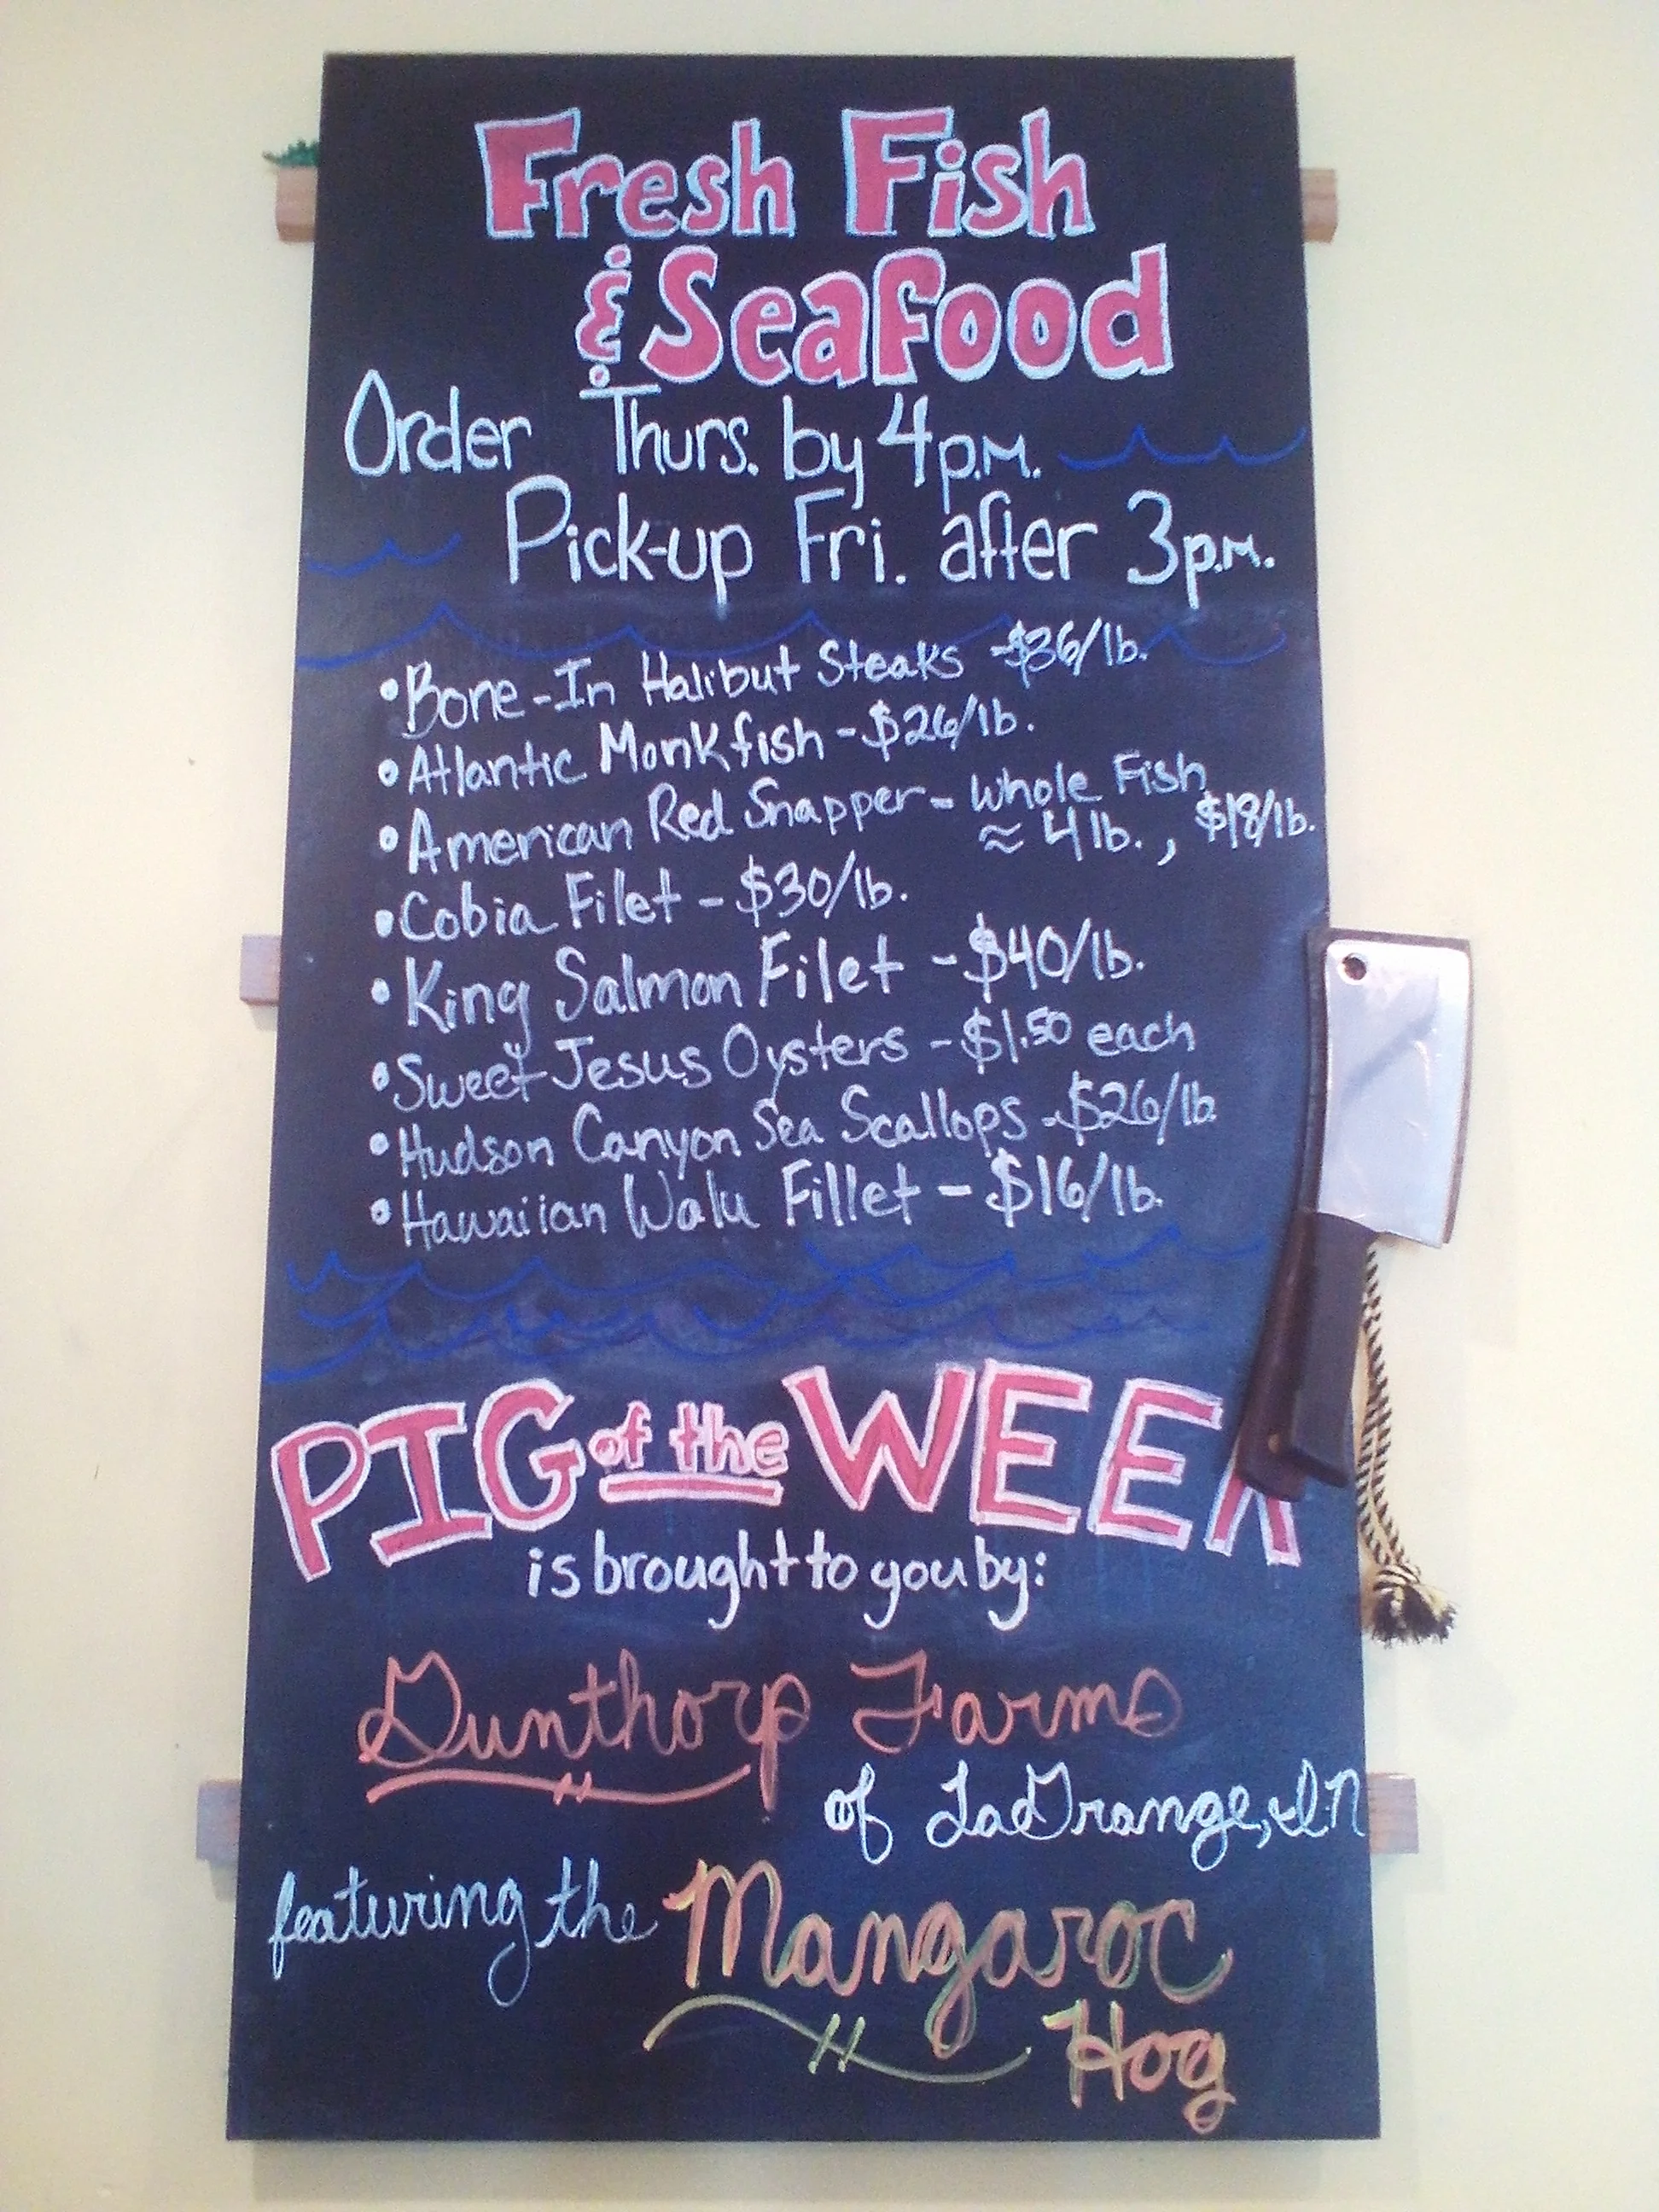 Fresh Fish
& Seafood
Order Thurs. by 4p.m.
Pick-up Fri. after 3p.m.
•Bone-In Halibut Steaks -$36/lb.
•Atlantic Monkfish-$26/lb.
•American Red Snapper- Whole Fish
≈ 4 lb., $18/lb.
•Cobia Filet-$30/lb.
•King Salmon Filet -$40/lb.
•Sweet Jesus Oysters -$1.50 each
•Hudson Canyon Sea Scallops -$26/lb.
•Hawaiian Walu Fillet - $16/lb.
PIG of the WEEK
is brought to you by:
Gunthorp Farms
of LaGrange, IN
featuring the Mangaroc
Hog